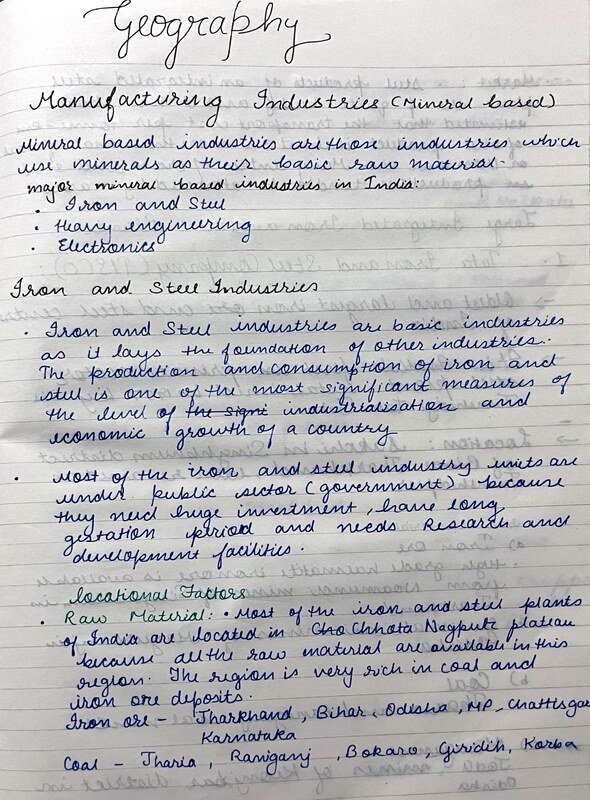 Geography
Manufacturing Industries (Mineral based)
Mineral based industries are those industries which
use minerals as their basic raw material.
major mineral based industries in India:
• Iron and Steel
• Heavy engineering
• Electronics
Iron and Steel Industries
• Iron and Steel industries are basic industries
as it lays the foundation of other industries.
The production and consumption of iron and
steel is one of the most significant measures of
the level of the signi industrialisation and
economic growth of a country
• Most of the iron and steel industry units are
under public sector (government) because
they need huge investment, have long
gestation period and needs Research and
development facilities.
Locational Factors
• Raw Material: • Most of the iron and steel plants
of India are located in Cho Chhota Nagpur plateau
because all the raw material are available in this
region. The region is very rich in coal and
iron ore deposits.
Iron ore - Jharkhand, Bihar, Odisha, MP, Chattisgar
Karnataka
Coal - Jharia, Raniganj, Bokaro, Giridih, Korba